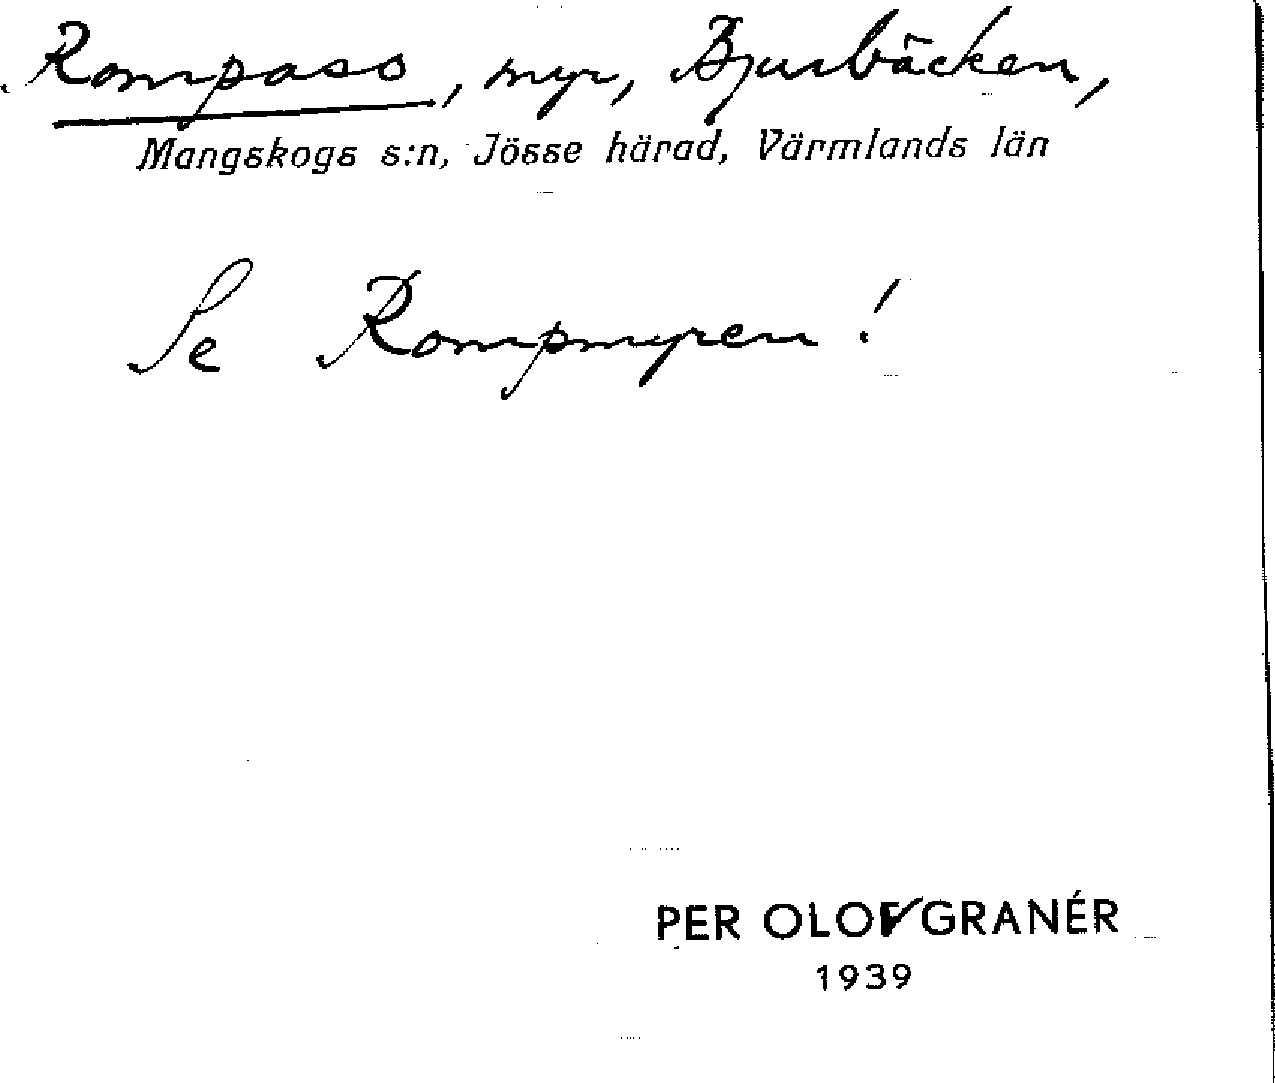 Rompass, myr, Bjurbäcken,
Mangskogs s:n, Jösse härad, Värmlands län
Se Rompmyren!
PER OLOF GRANÉR
1939